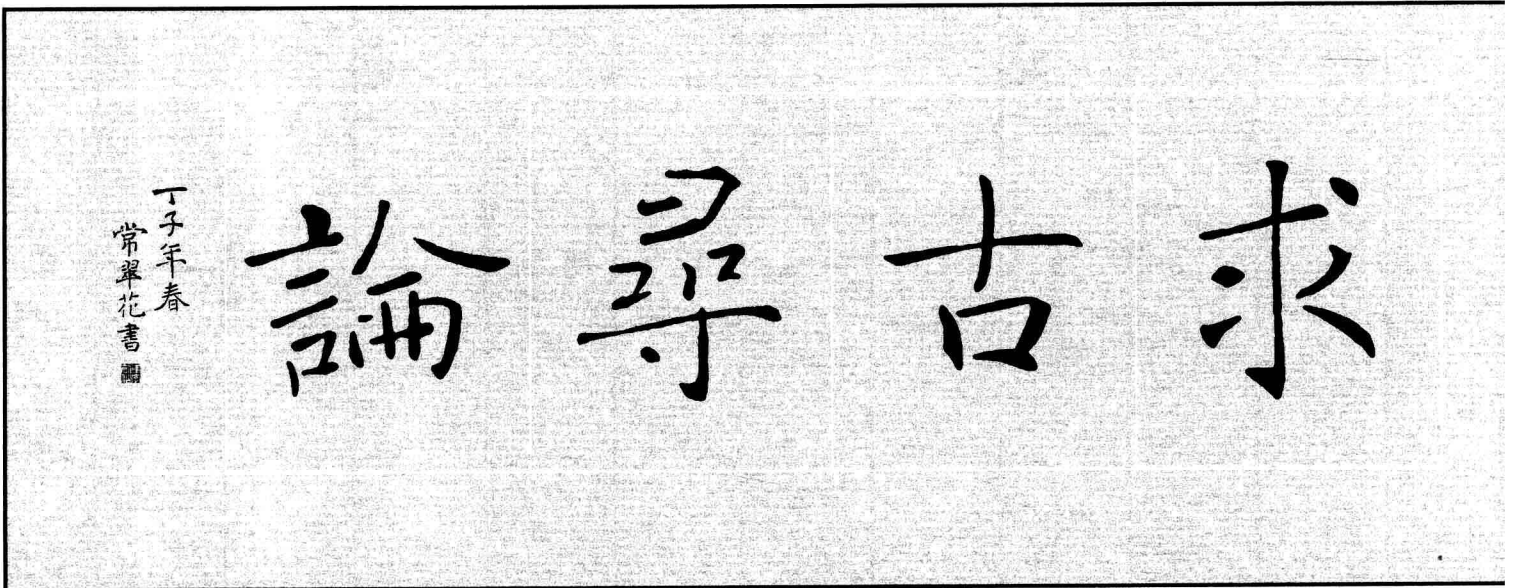 求古尋論
丁子年春
常翠花書